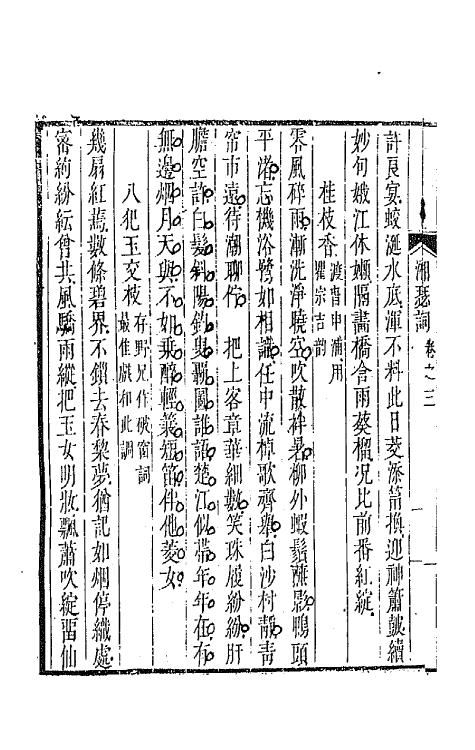 湘瑟詞 卷之三
許良宴蛟涎水底渾不料此日菱添箭換迎神簫鼓續
妙句娥江休嬾隔畫橋含雨葵榴況比前番紅綻
桂枝香 渡曹申浦用瞿宗吉韵
零風碎雨漸洗淨曉空吹散袢暑柳外蝦鬚蘸影鴨頭
平渚忘機浴鷺如相識任中流棹歌齊舉白沙村靜青
帘市遠待潮聊佇 把上客章華細數笑珠履紛紛肝
膽空許白髮斜陽釣叟羈閽誰語楚江似帶年年在有
無邊烟月天與不如乗醉輕簑短笛伴他菱女
八犯玉交枝 存野兄作破窗詞最佳戯和此調
幾扇紅蔫數條碧界不鎖去春黎夢猶記如烟停織處
密約紛紜曾共風驕雨縱把玉女明妝飄蕭吹綻留仙